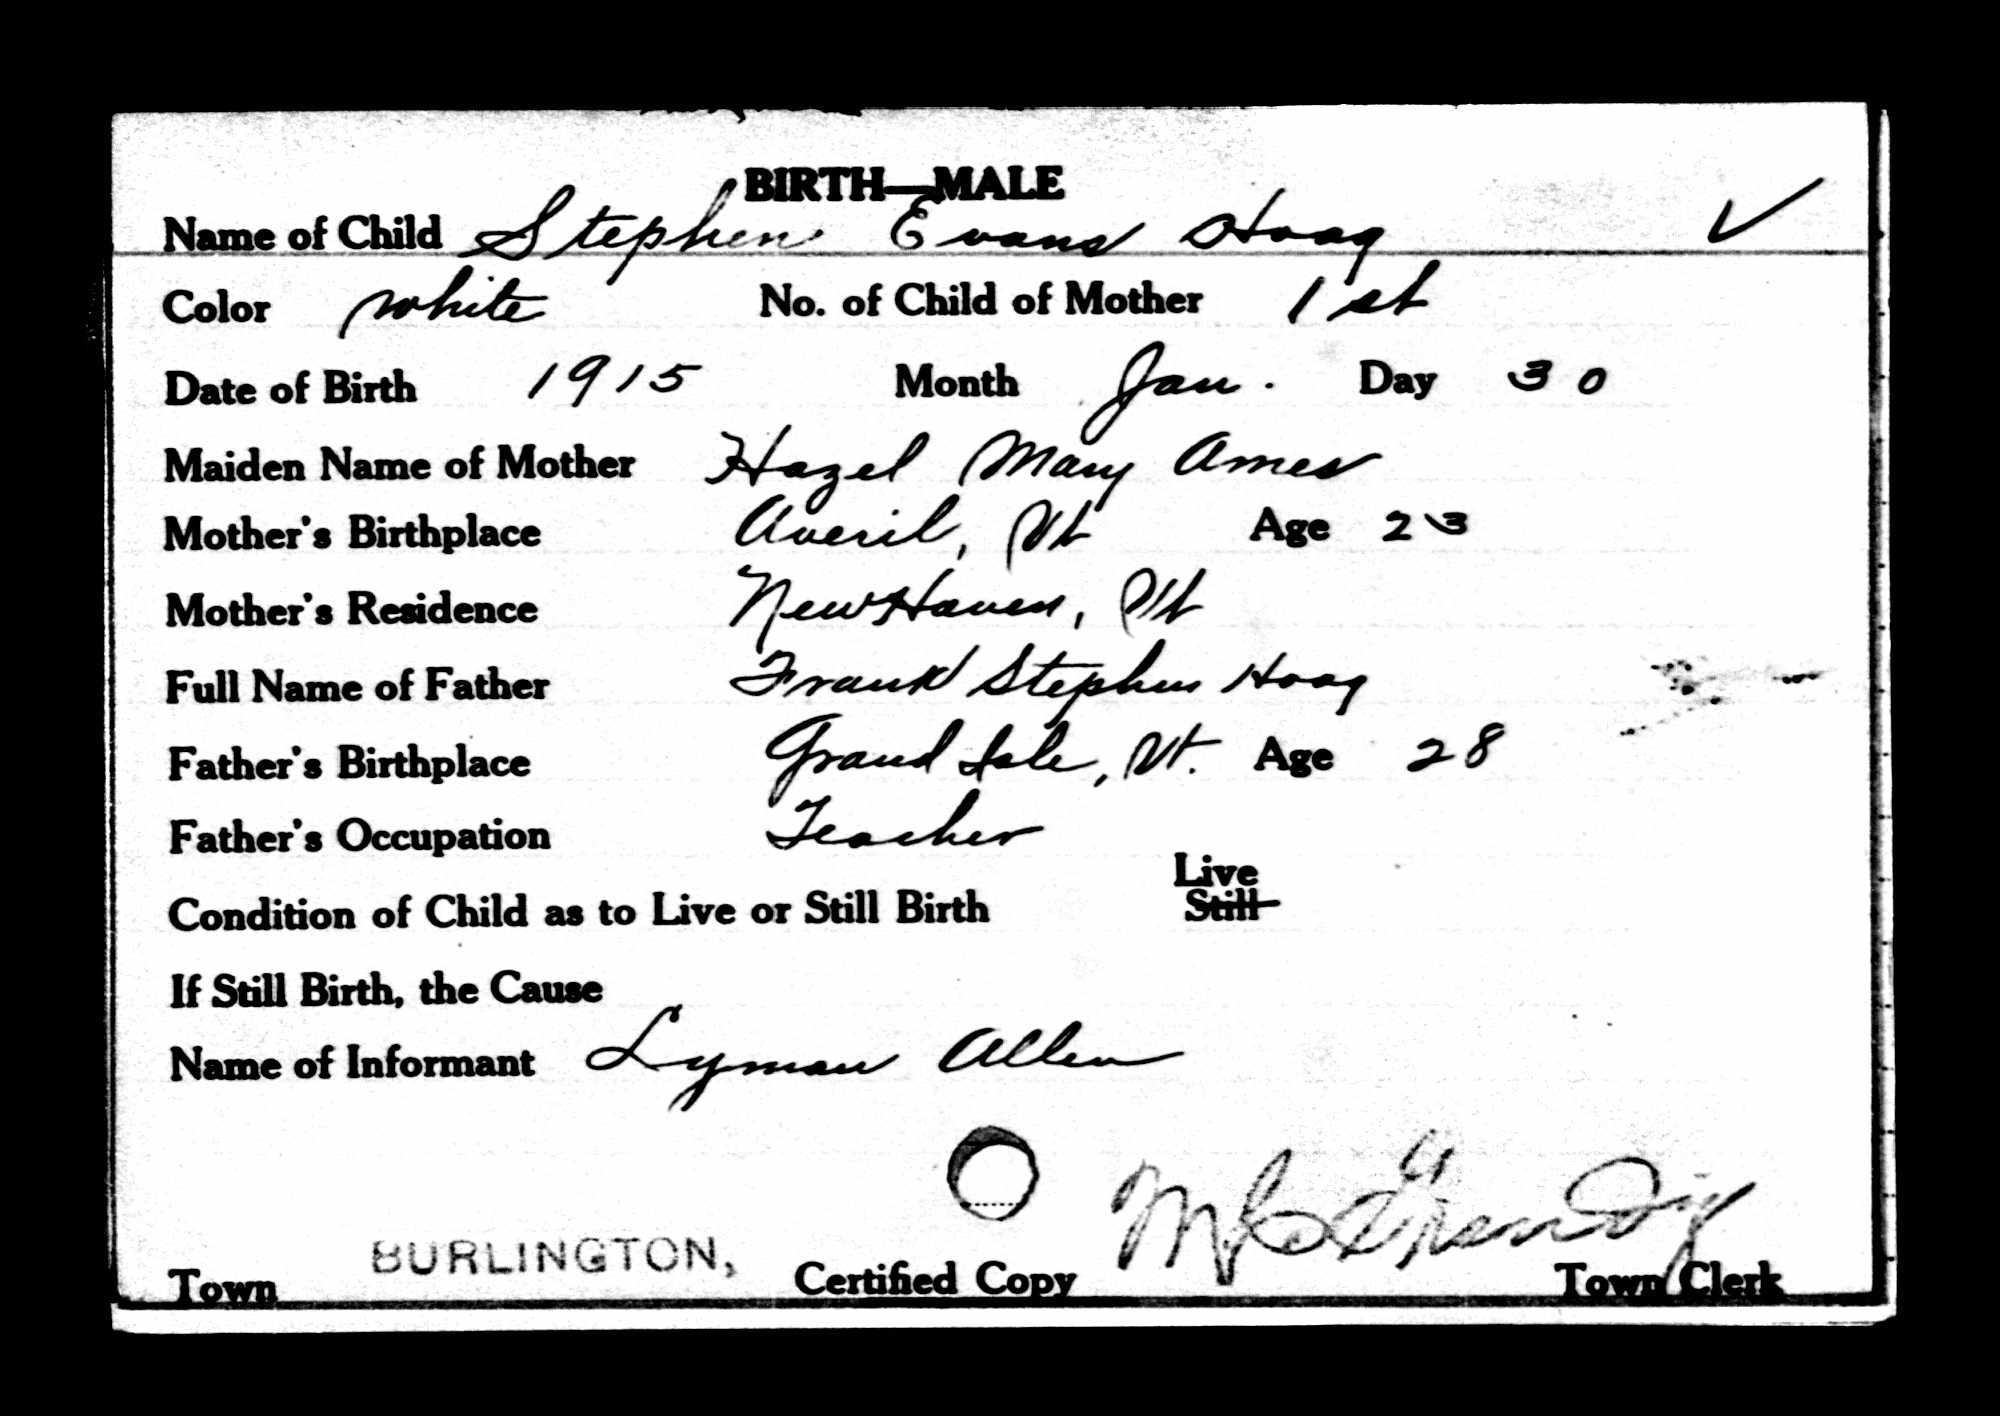 BIRTH—MALE
Name of Child Stephen Evans Hoag
Color white No. of Child of Mother 1st
Date of Birth 1915 Month Jan. Day 30
Maiden Name of Mother Hazel Mary Ames
Mother's Birthplace Averil, Vt Age 23
Mother's Residence New Haven, Vt
Full Name of Father Frank Stephen Hoag
Father's Birthplace Grand Isle, Vt. Age 28
Father's Occupation Teacher
Live
Condition of Child as to Live or Still Birth Still
If Still Birth, the Cause
Name of Informant Lyman Allen
Town BURLINGTON, Certified Copy Town Clerk